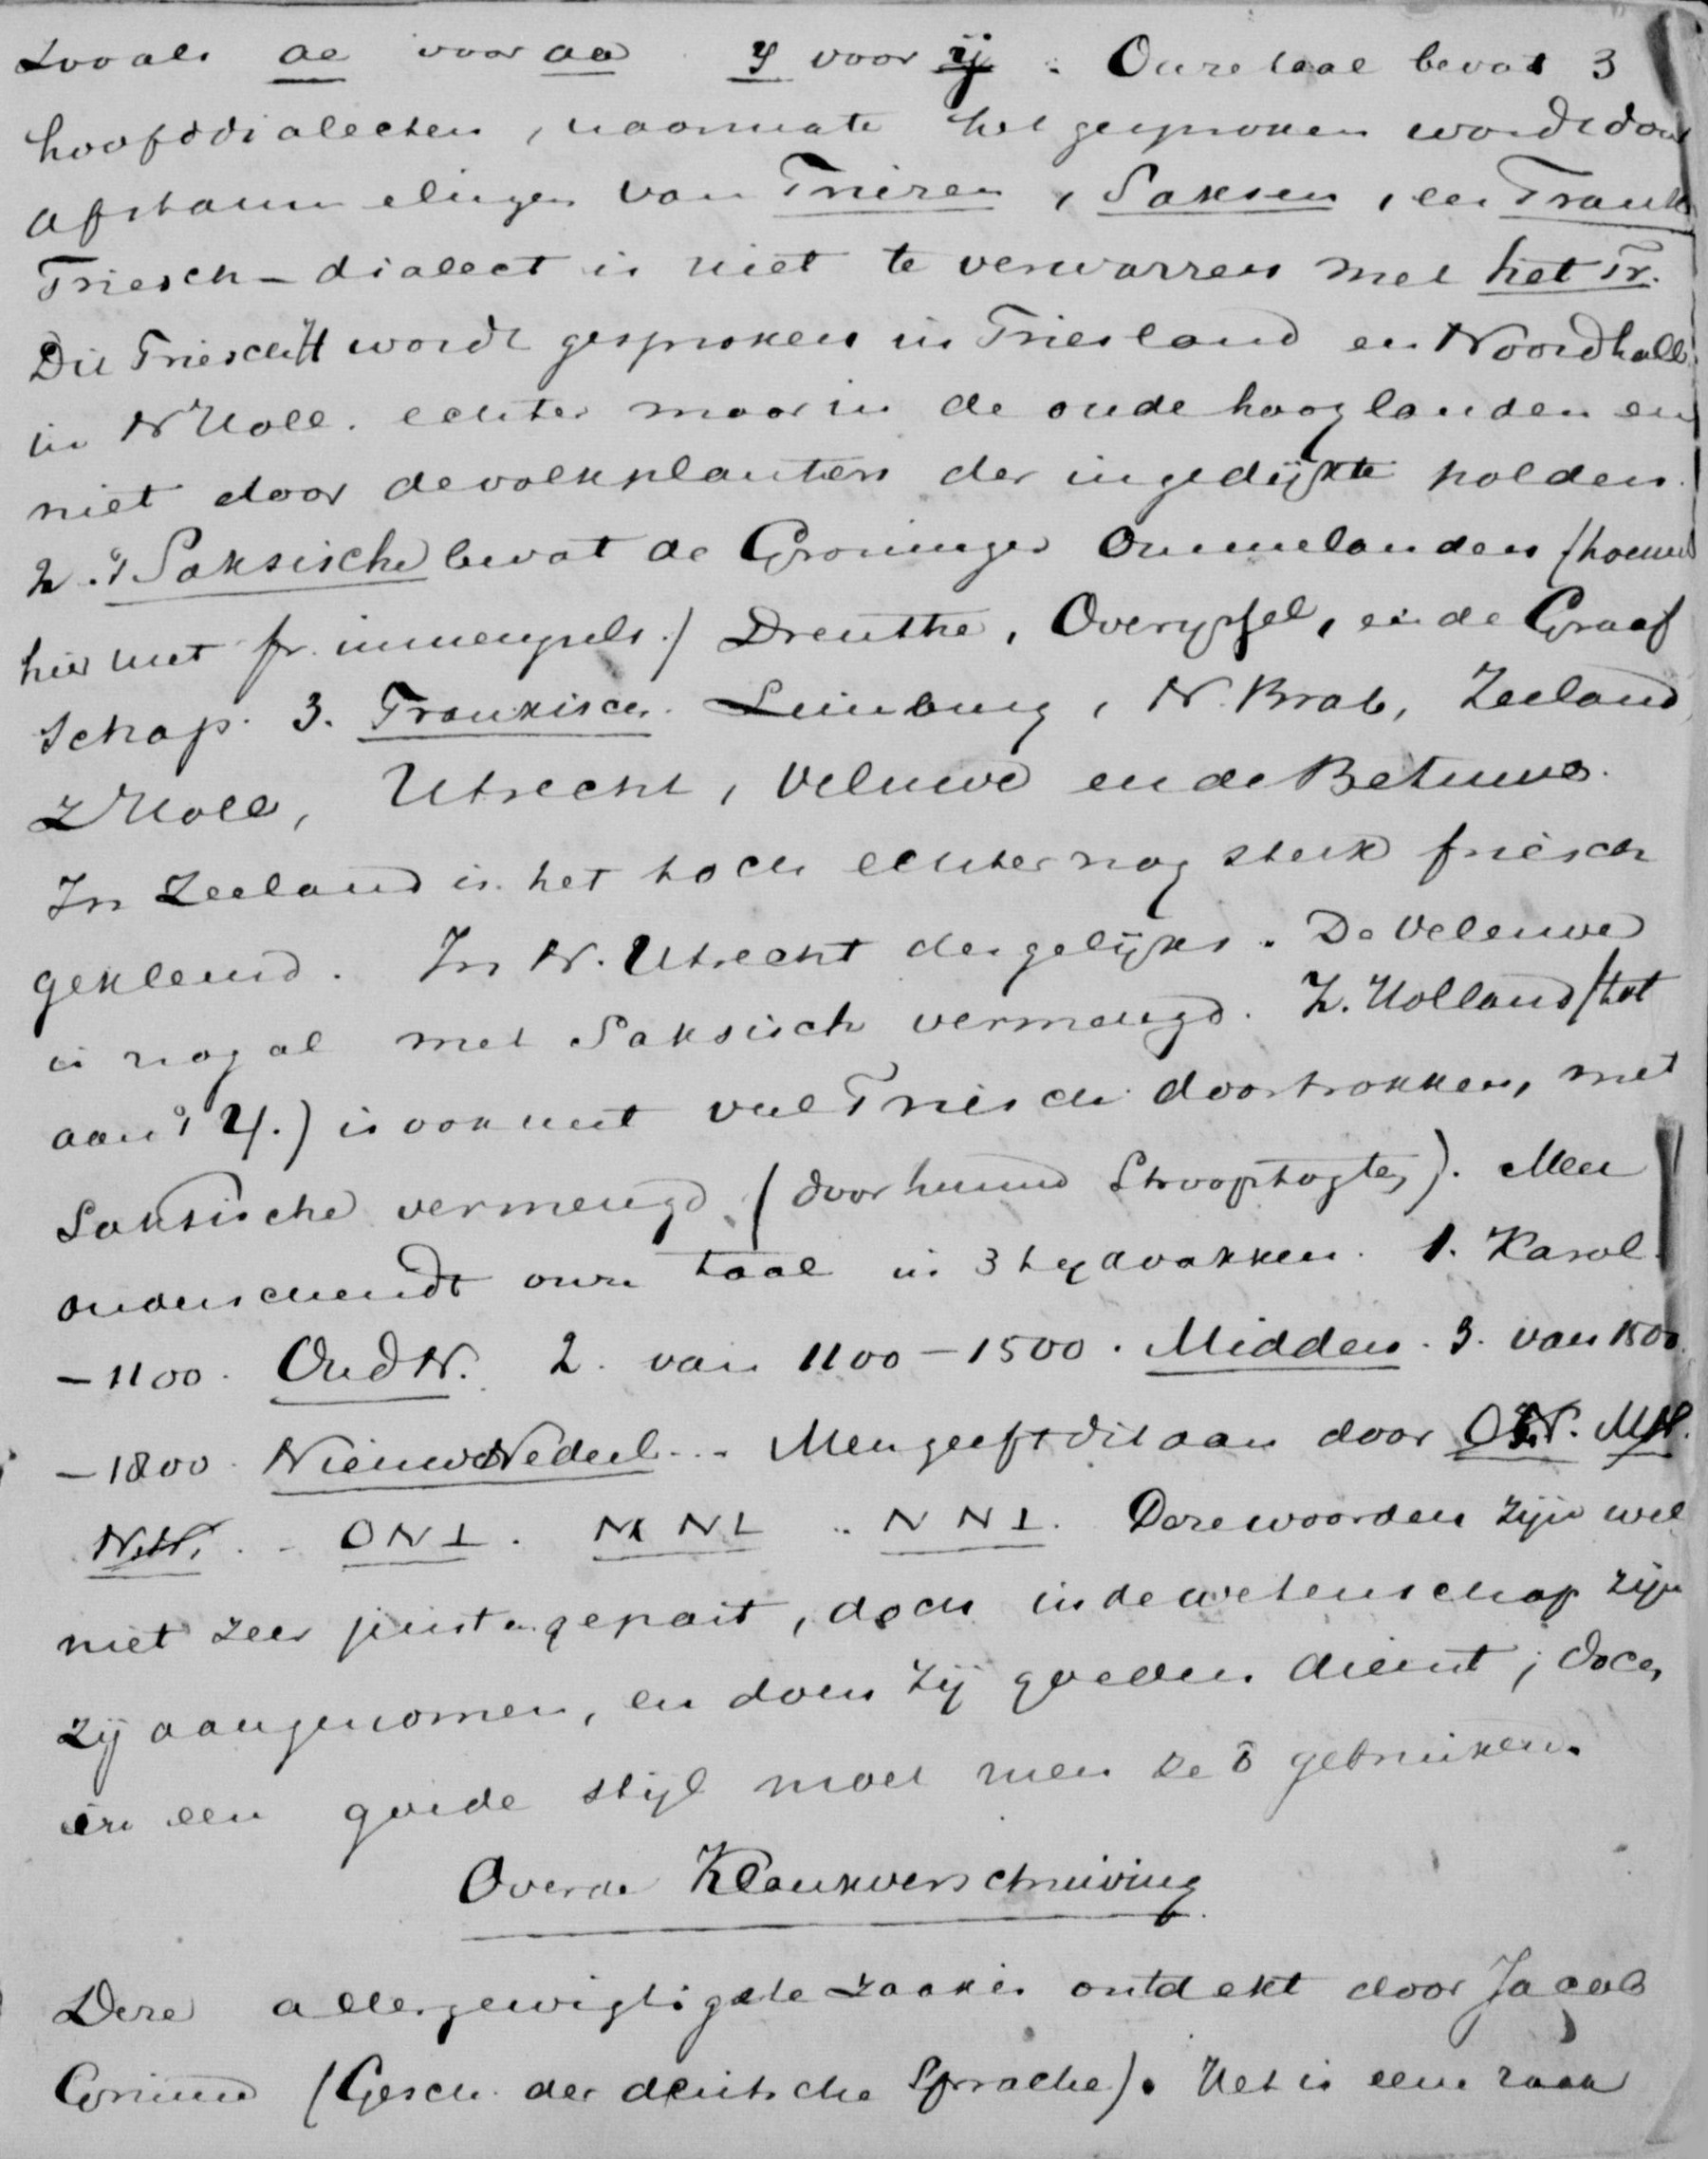 Zooals ae voor aa y voor ij. Onze taal bevat 3
hoofddialecten, naarmate het gesproken wordt door
afstammelingen van Friezen, Saksen, en Frank
Friesch-dialect is niet te verwarren met het Fr.
Dit Friesch wordt gesproken in Friesland en Noordholl
in N Holl. echter maar in de oude hooglanden en
niet door de volkplanters der ingedijkte polders.
2. 't Saksische bevat de Groninger Ommelanden (hoewel
hier met fr. inmengsels.) Drenthe, Overijssel, en de Graaf
schap. 3. Frankisch. Limburg, N. Brab, Zeeland
Z Holl, Utrecht, Veluwe en de Betuwe.
In Zeeland is het toch echter nog sterk friesch
gekleurd. In N. Utrecht dergelijks. De Veluwe
is nog al met Saksisch vermengd. Z. Holland (tot
aan 't Y.) is ook met veel Friesch doortrokken, met
Saksische vermengd (door hunne Strooptogten). Men
onderscheidt onze taal in 3 tijdvakken. 1. Karol.
- 1100. Oud N. 2. van 1100 - 1500. Midden. 3. van 1500
- 1800. Nieuw Nederl... Men geeft dit aan door ON. MN.
NN. .. ONL. MNL .. NNL. Deze woorden zijn wel
niet zeer juist gepast, doch in de wetenschap zijn
zij aangenomen, en doen zij goeden dienst; doch
in een goede stijl moet men ze ō gebruiken.
Over de Klankverschuiving
Deze allergewigtigste zaak is ontdekt door Jacob
Grimm (Gesch. der deutsche Sprache). Het is eene zaak